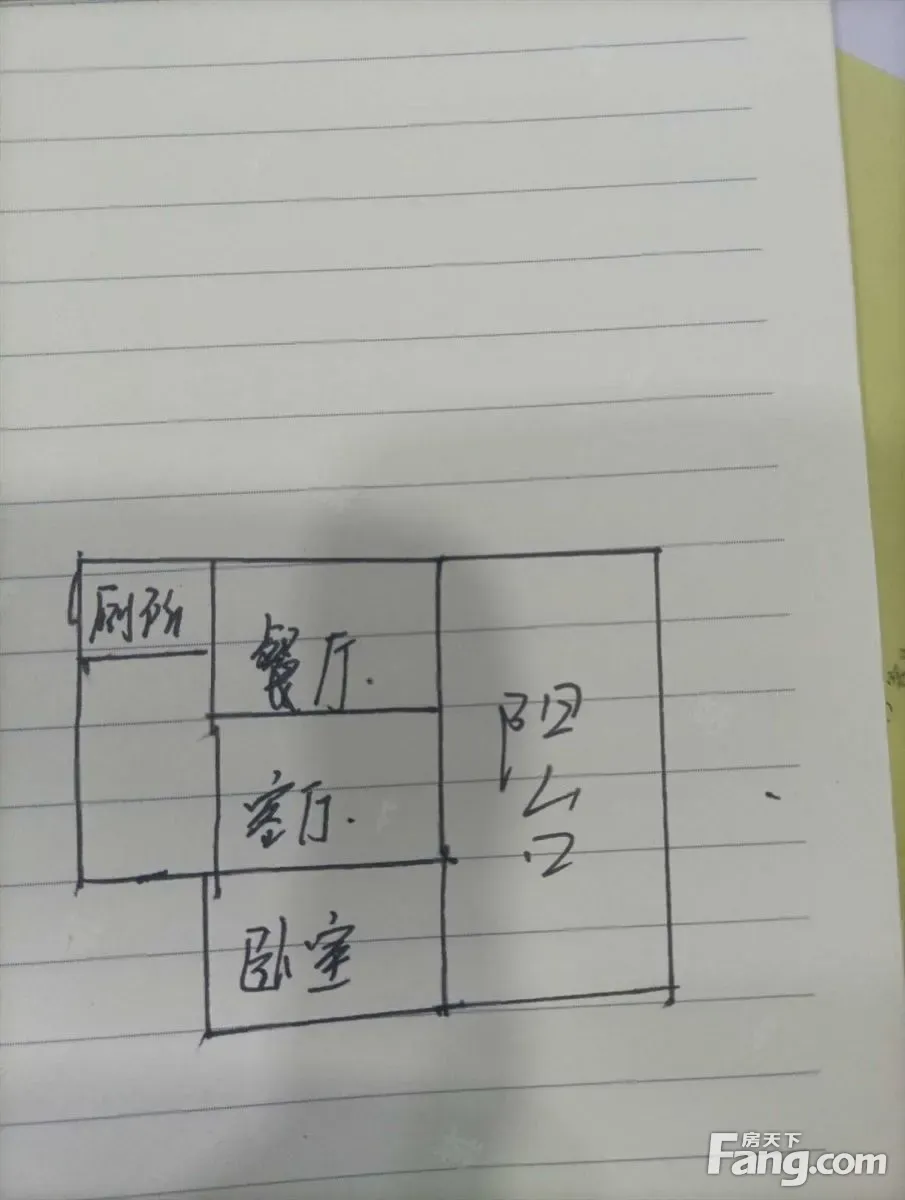 厕所
餐厅.
客厅.
卧室
阳台
房天下
Fang.com